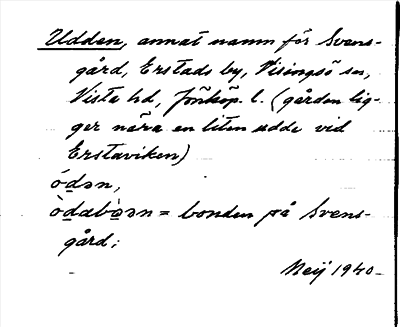 Udden, annat namn för Svens-
gård, Erstads by, Visingsö sn,
Vista hd, Jönköp. l. (gården lig-
ger nära en liten udde vid
Erstaviken)
ódən,
òdabòən = bonden på Svens-
gård;
Meij 1940